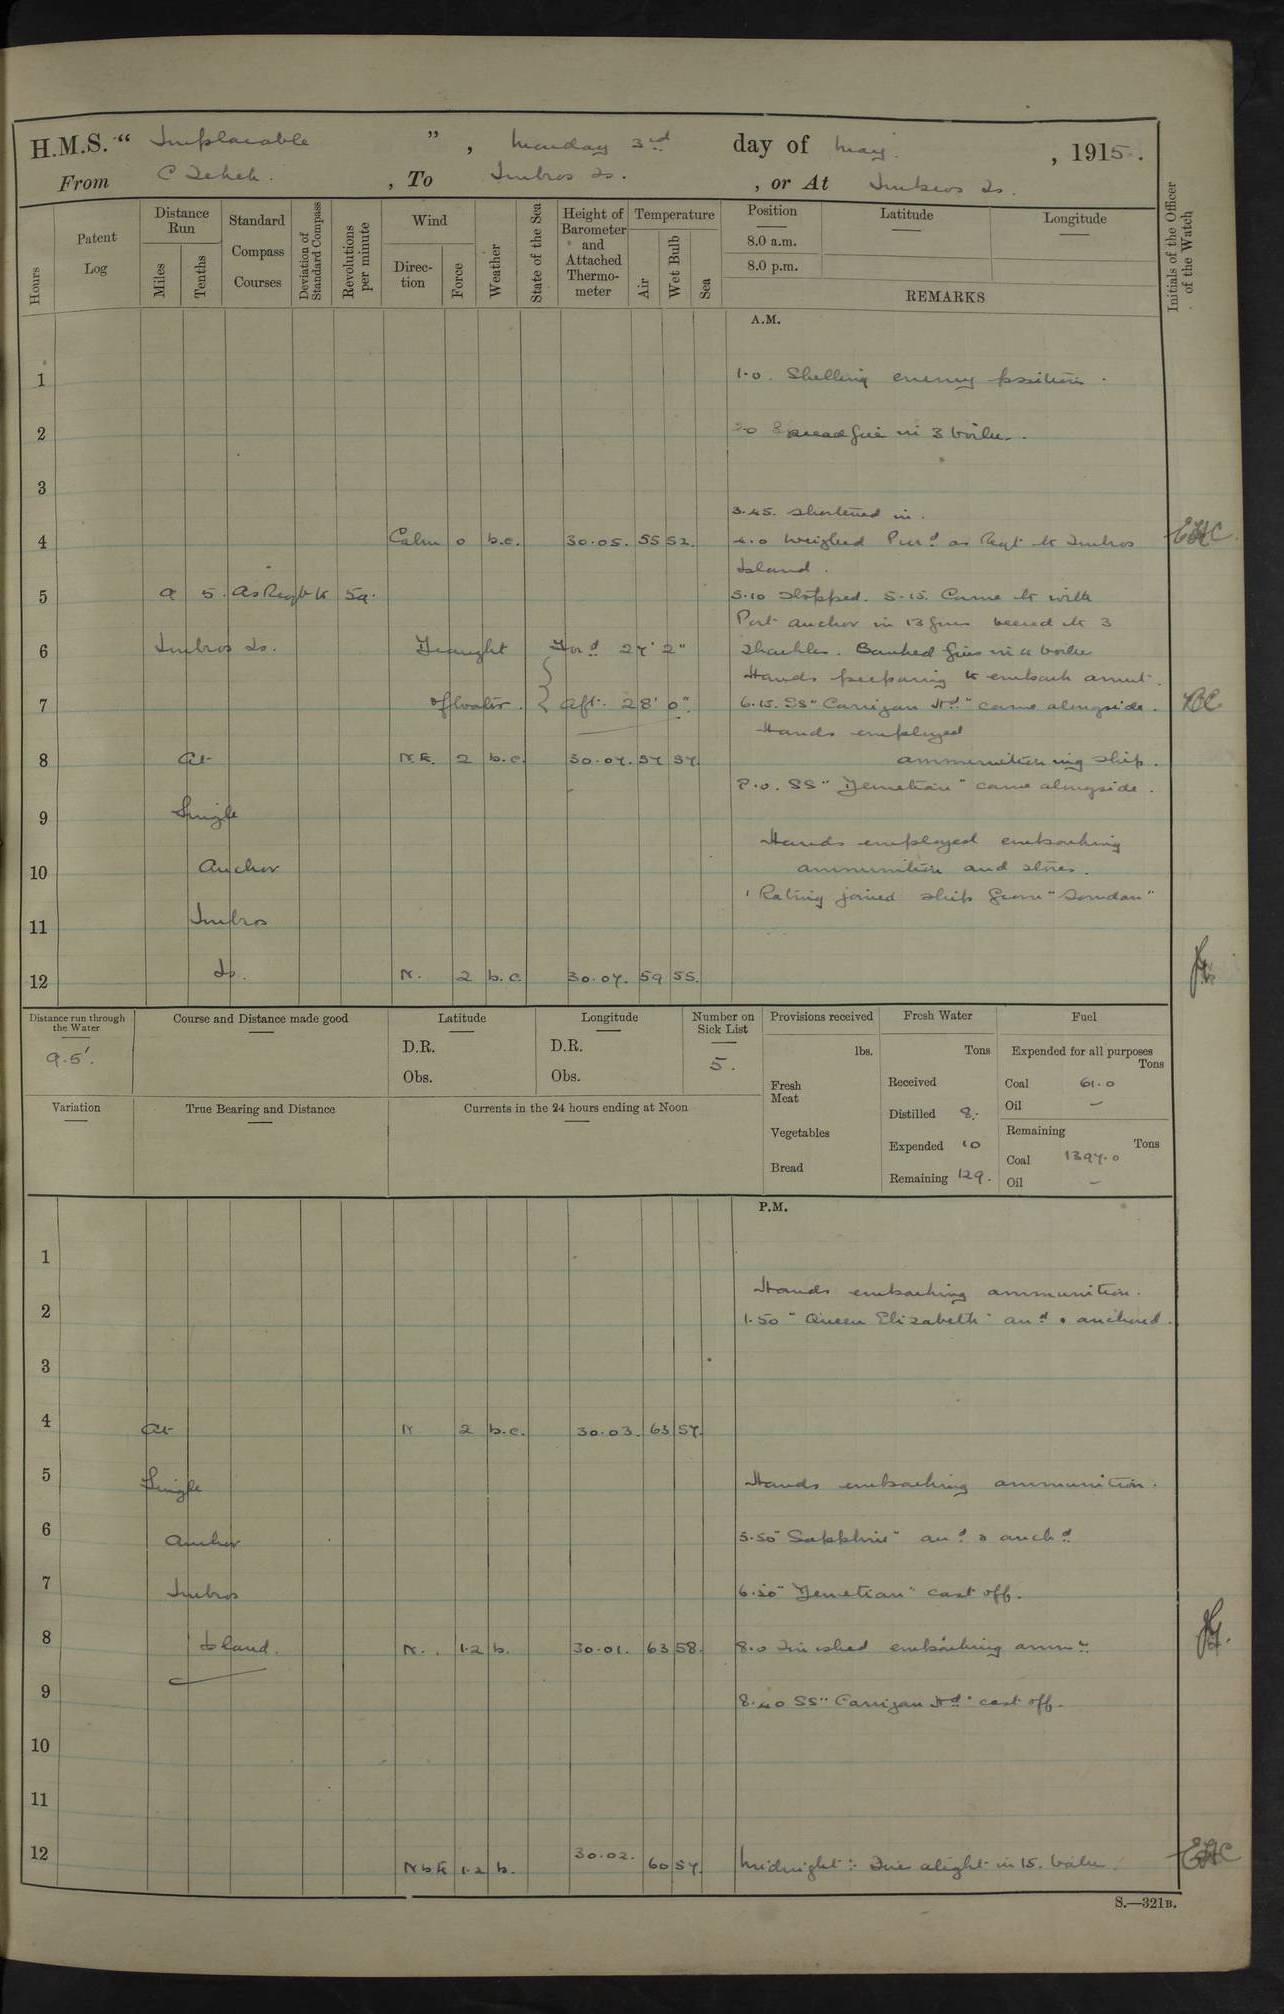 H.M.S. “ Implacable ” , Monday 3rd day of May , 1915.
From C Tekeh. , To Imbros Is. , or At Imbros Is.
Hours
Patent Log
Distance Run
Miles
Tenths
Standard Compass Courses
Deviation of Standard Compass
Revolutions per minute
Wind
Direction
Force
Weather
State of the Sea
Height of Barometer and Attached Thermometer
Temperature
Air
Wet Bulb
Sea
Position
8.0 a.m.
8.0 p.m.
Latitude
Longitude
REMARKS
Initials of the Officer of the Watch
A.M.
1 1.0. Shelling enemy position.
2 2.0 Spread fire in 3 boiler.
3
3.45. Shortened in.
4 Calm 0 b.c. 30.05. 55 52. 4.0 Weighed Proc.d as Reqt to Imbros EHC
Island.
5 9 5. As Reqt to 59. 5.10 Stopped. 5.15. Came to with
Port anchor in 13 fms veered to 3
6 Imbros Is. Draught For.d 27' 2" shackles. Banked fires in 4 boiler
Hands preparing to embark ammt.
7 of water. Aft. 28' 0". 6.15. SS "Carrigan Hd." came alongside.
Hands employed
8 At N.E. 2 b.c. 30.07. 57 57. ammunitioning ship.
8.0. SS "Demetian" came alongside.
9 Single
Hands employed embarking
10 Anchor ammunition and stores.
1 Rating joined ship from "Soudan"
11 Imbros
12 Is. N. 2 b.c. 30.07. 59 55.
Distance run through the Water
9.5'.
Course and Distance made good
Latitude
D.R.
Obs.
Longitude
D.R.
Obs.
Number on Sick List
5.
Provisions received
lbs.
Fresh Meat
Vegetables
Bread
Fresh Water
Tons
Received
Distilled 8.
Expended 10
Remaining 129.
Fuel
Expended for all purposes
Tons
Coal 61.0
Oil —
Remaining
Tons
Coal 1397.0
Oil —
Variation
True Bearing and Distance
Currents in the 24 hours ending at Noon
P.M.
1
Hands embarking ammunition.
2 1.50 "Queen Elizabeth" arr.d & anchored.
3
4 At N 2 b.c. 30.03. 63 57.
5 Single Hands embarking ammunition.
6 Anchor 5.50 "Sapphire" arr.d & anch.d
7 Imbros 6.50 "Demetian" cast off.
8 Island. N. 1.2 b. 30.01. 63 58. 8.0 Finished embarking ammn.
9 8.40 SS "Carrigan Hd." cast off.
10
11
12 NbE 1.2 b. 30.02. 60 57. Midnight: Fire alight in 15. boiler. EHC
S.—321B.